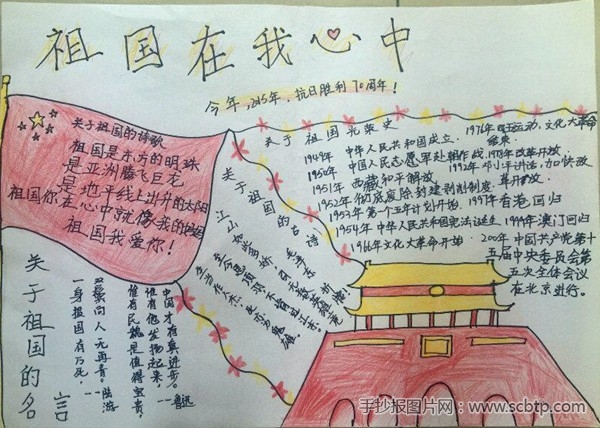 祖国在我心中
今年,2015年,抗日胜利70周年!
关于祖国的诗歌
祖国是东方的明珠
是亚洲腾飞巨龙
是地平线上出升的太阳
祖国你在心中就像我的
祖国我爱你!
关于祖国的名言
位卑未敢忘忧国
一身报国有万死,
双鬓向人无再青。--陆游
惟有民魂是值得宝贵,
惟有他发扬起来,
中国才有真进步。--鲁迅
关于祖国的古诗
江山如此多娇,
--毛泽东
生当作人杰,死亦为鬼雄,
至今思项羽,不肯过江东。
关于祖国光荣史
1949年 中华人民共和国成立.
1950年 中国人民志愿军赴朝作战,
1951年 西藏和平解放
1952年彻底废除封建剥削制度.
1953年第一个五年计划开始.
1954年 中华人民共和国宪法诞生
1966年文化大革命开始.
1976年 运动,文化大革命
结束.
1978年改革开放.
1992年邓小平讲话,加快改
革开放.
1997年香港回归
1999年澳门回归
2000年中国共产党第十
五届中央委员会第
五次全体会议
在北京进行。
手抄报图片网:www.scbtp.com